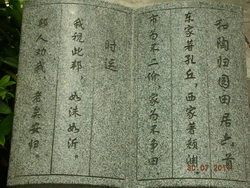 和陶归园田居六首
东家著孔丘，西家著颜渊。
市为不二价，农为不争田。
时运
我视此邦，如洙如沂。
邦人劝我，老矣安归。